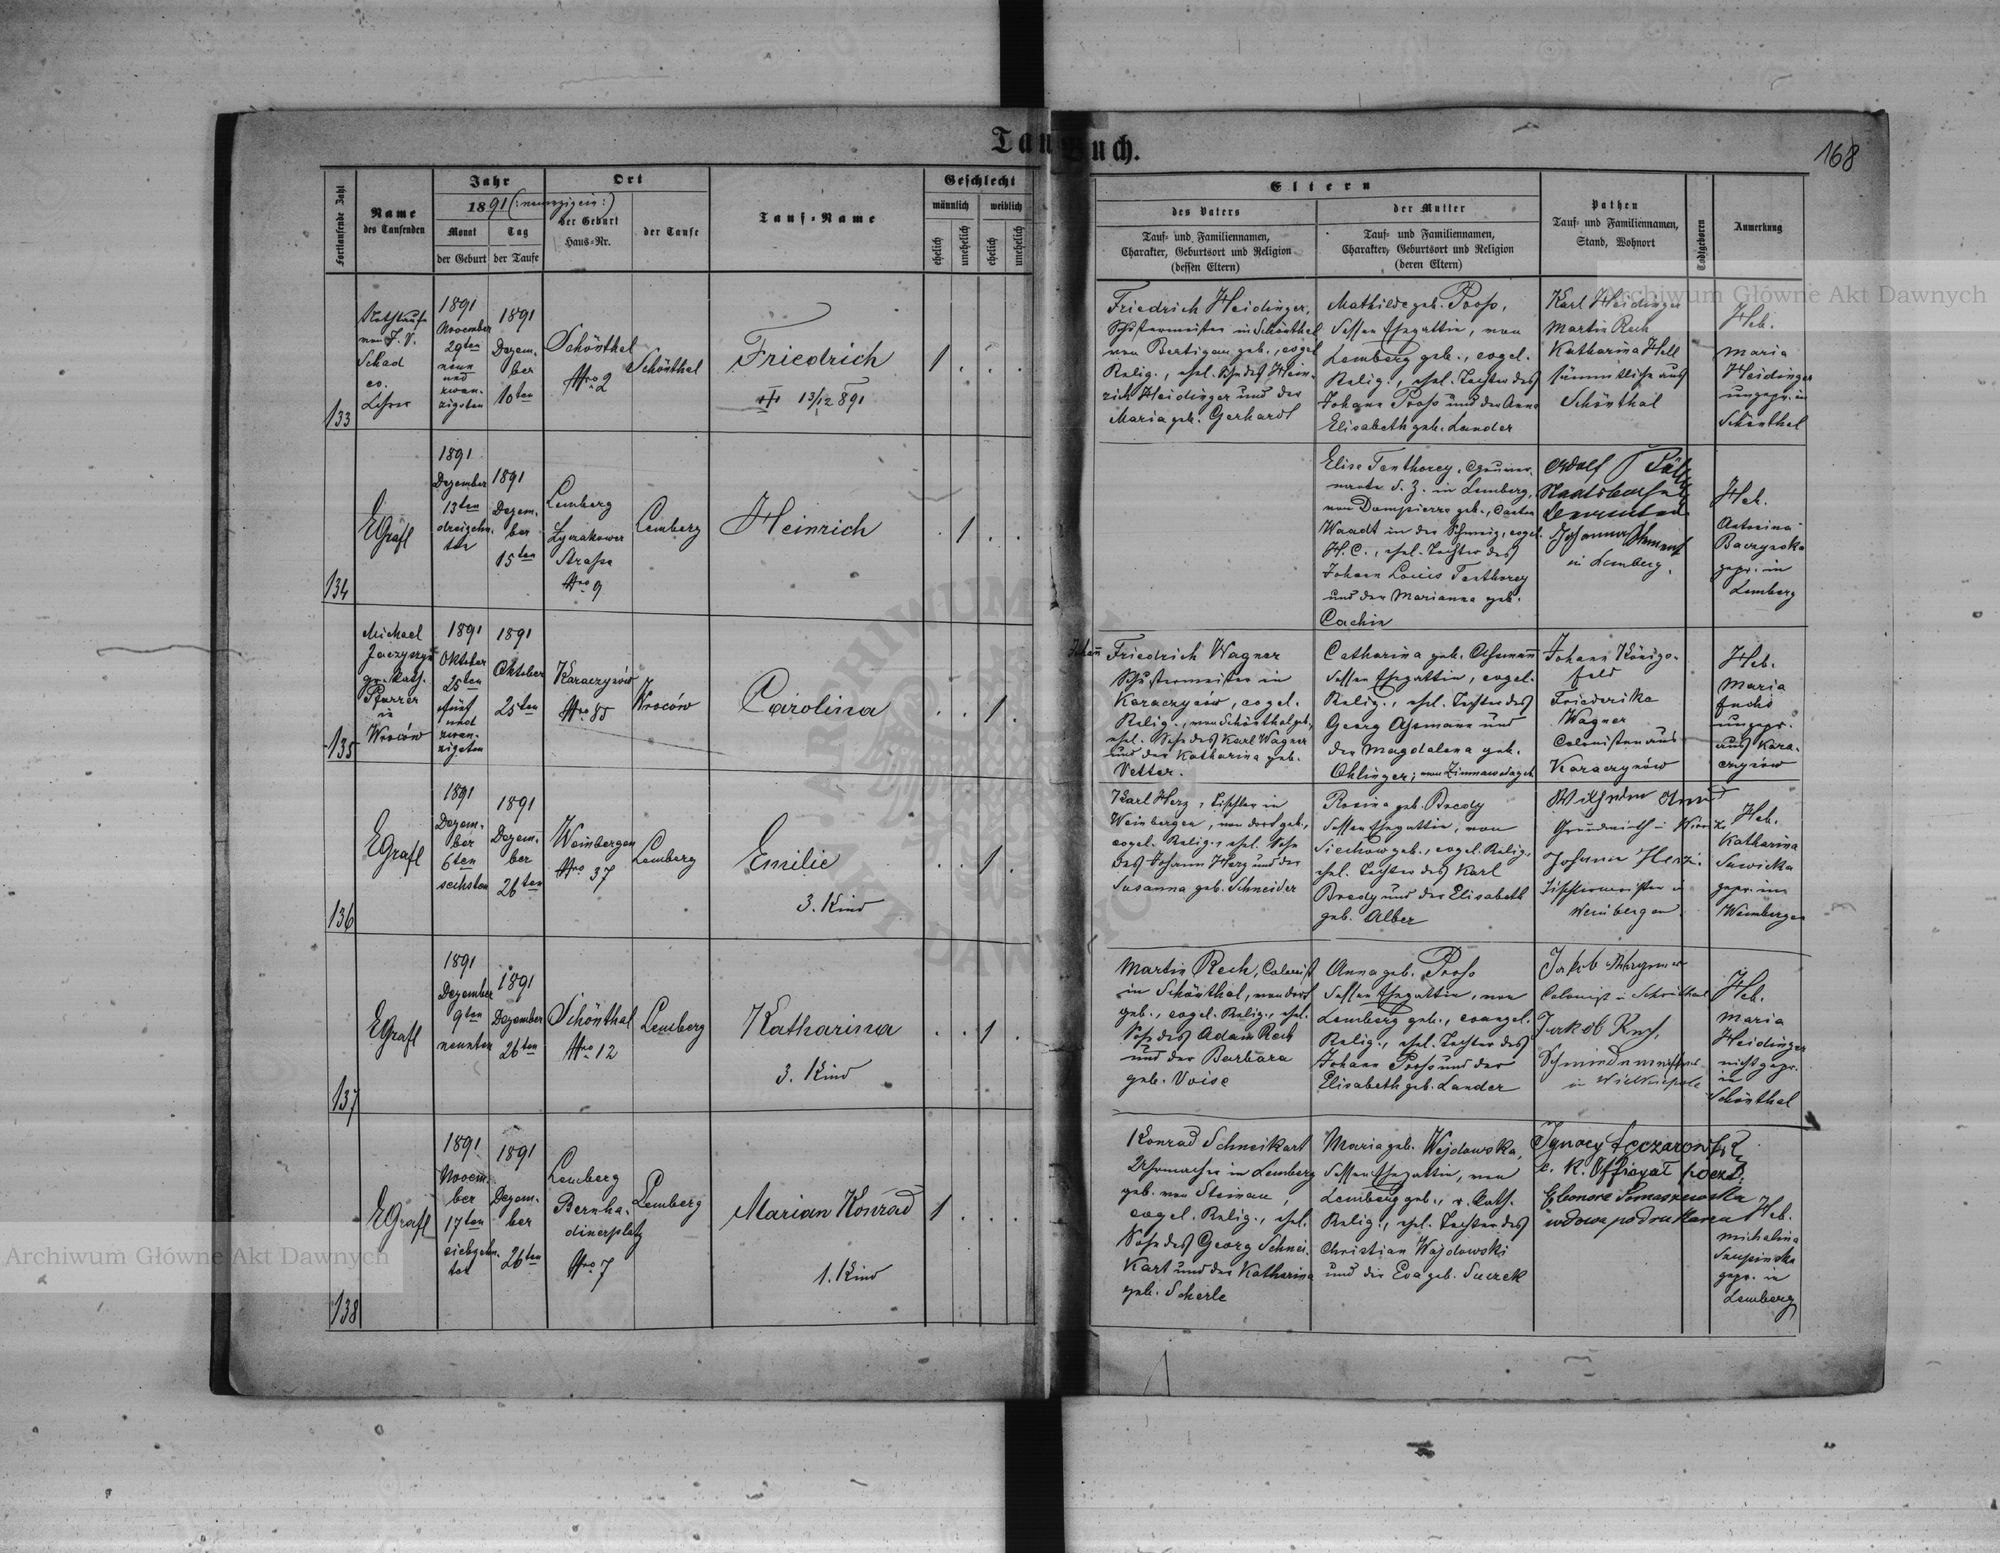 Tau Buch.
168
Fortlaufende Zahl
Name
des Taufenden
Jahr
1891 (:neunzigein:)
Monat
der Geburt
Tag
der Taufe
Ort
der Geburt
Haus-Nr.
der Taufe
Tauf-Name
Geschlecht
männlich
weiblich
ehelich
unehelich
ehelich
unehelich
Eltern
des Vaters
Tauf- und Familiennamen,
Charakter, Geburtsort und Religion
(dessen Eltern)
der Mutter
Tauf- und Familiennamen,
Charakter, Geburtsort und Religion
(deren Eltern)
Pathen
Tauf- und Familiennamen,
Stand, Wohnort
Todtgeboren
Anmerkung
133
Nothtaufe
von J. V.
Schad
ev.
Lehrer
1891
November
29ten
neun
und
zwan-
zigsten
1891
Dezem-
ber
10ten
Schönthal
Nro 2
Schönthal
Friedrich
13/12 891
1 . . .
Friedrich Heidinger,
Schustermeister in Schönthal
von geb., evgel.
Relig., ehel. Sohn des Hein-
rich Heidinger und der
Maria geb. Gerhardt
Mathilde geb. Pross,
dessen Ehegattin, von
Lemberg geb., evgel.
Relig., ehel. Tochter des
Johann Pross und der Anna
Elisabeth geb. Lander
Karl Heidinger
Martin Rech
Katharina Hell
sämmtliche aus
Schönthal
Heb.
Maria
Heidinger
ungepr. in
Schönthal
134
EGrafl
1891
Dezember
13ten
dreizehn-
ten
1891
Dezem-
ber
15ten
Lemberg
Lyczakower
Strasse
Nro 9
Lemberg
Heinrich
. 1 . .
Elise Tenthorey,
in Lemberg,
von Dompierre geb., Canton
Waadt in der Schweiz, evgel.
H. C., ehel. Tochter des
Johann Louis Tenthorey
und der Marianna geb.
Cachin
Adolf
in Lemberg.
Heb.
Antonina
gepr. in
Lemberg
135
Michael
gr. kath.
Pfarrer
in
Wroców
1891
Oktober
25ten
fünf
und
zwan-
zigsten
1891
Oktober
25ten
Karaczynów
Nro 85
Wroców
Carolina
. . 1 .
Johann
Friedrich Wagner
Schustermeister in
Karaczynów, evgel.
Relig., von Schönthal geb.,
ehel. Sohn des Karl Wagner
und der Katharina geb.
Vetter.
Catharina geb. Assmann
dessen Ehegattin, evgel.
Relig., ehel. Tochter des
Georg Assmann und
der Magdalena geb.
Ohlinger; von
Johann Königs-
feld
Friederike
Wagner
Colonisten aus
Karaczynów
Heb.
Maria
Fuchs
ungepr.
aus Kara-
czynów
136
EGrafl
1891
Dezem-
ber
6ten
sechsten
1891
Dezem-
ber
26ten
Weinbergen
Nro 37
Lemberg
Emilie
3. Kind
. . 1 .
Karl Herz, Tischler in
Weinbergen, von dort geb.,
evgel. Relig., ehel. Sohn
des Johann Herz und der
Susanna geb. Schneider
Rosina geb. Bredy
dessen Ehegattin, von
geb., evgel. Relig.,
ehel. Tochter des Karl
Bredy und der Elisabeth
geb. Alber
Wilhelm
Johann Herz.
Tischlermeister in
Weinbergen
Heb.
Katharina
Sawicka
gepr. in
Weinbergen
137
EGrafl
1891
Dezember
9ten
neunten
1891
Dezember
26ten
Schönthal
Nro 12
Lemberg
Katharina
3. Kind
. . 1 .
Martin Rech, Colonist
in Schönthal, von dort
geb., evgel. Relig., ehel.
Sohn des Adam Rech
und der Barbara
geb. Voise
Anna geb. Pross
dessen Ehegattin, von
Lemberg geb., evangel.
Relig., ehel. Tochter des
Johann Pross und der
Elisabeth geb. Lander
Jakob
Colonist in Schönthal
Jakob
in
Heb.
Maria
Heidinger
nicht gepr.
in
Schönthal
138
EGrafl
1891
Novem-
ber
17ten
siebzehn-
ten
1891
Dezem-
ber
26ten
Lemberg
Bernha-
dinerplatz
Nro 7
Lemberg
Marian Konrad
1. Kind
1 . . .
Konrad Schneikart
Uhrmacher in Lemberg
geb. von Steinau,
evgel. Relig., ehel.
Sohn des Georg Schnei-
kart und der Katharina
geb. Scherle
Maria geb. Wojdowska,
dessen Ehegattin, von
Lemberg geb., r. kath.
Relig., ehel. Tochter des
Christian Wojdowski
und der Eva geb.
Ignacy
c. K. Offizyał poczt.
Eleonora
wdowa po
Heb.
Michalina
gepr. in
Lemberg
Archiwum Główne Akt Dawnych
Archiwum Główne Akt Dawnych